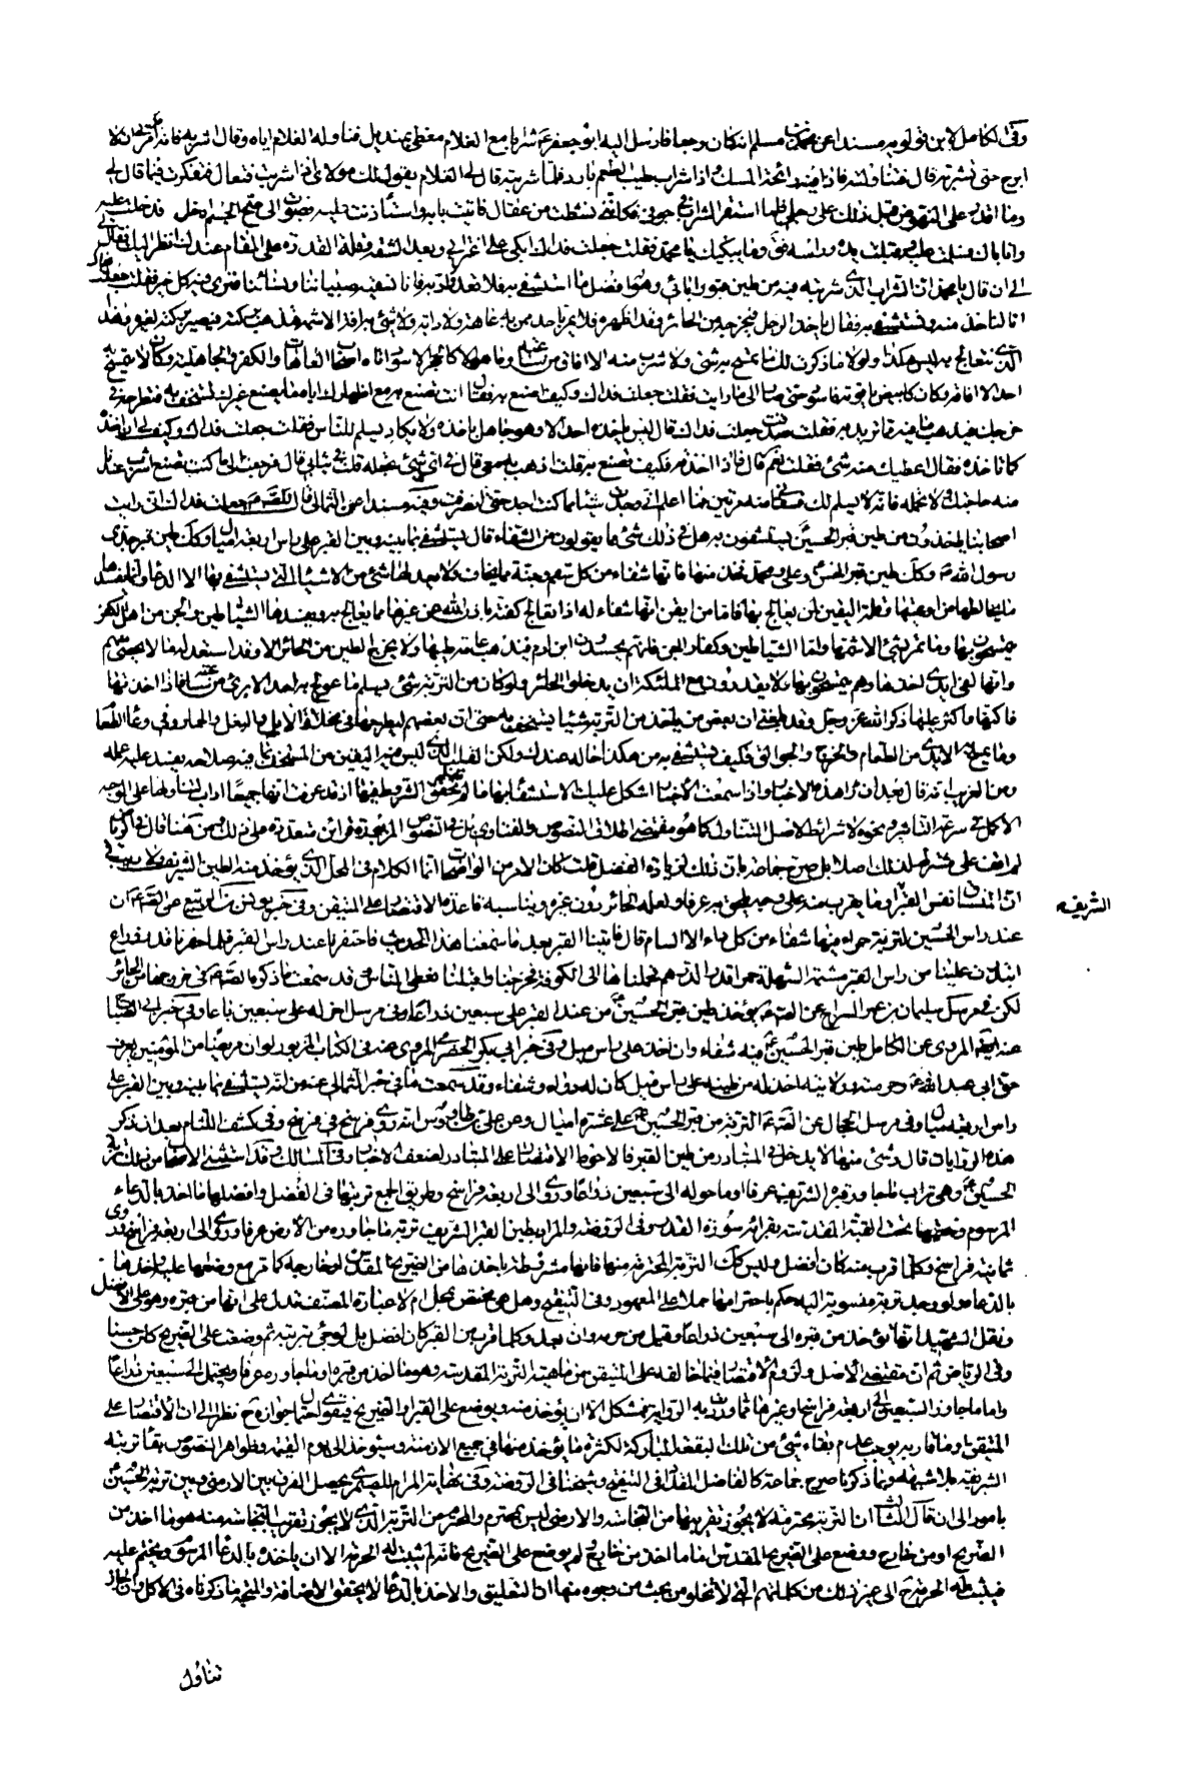 وفى الكامل لابن قولويه مسندا عن محمد بن مسلم انه كان وجعا فارسل اليه ابو جعفر ع شرابا مع الغلام مغطى بمنديل فناوله الغلام اياه وقال اشربه فانه امرنى ان لا
ابرح حتى تشربه قال فتناولته فاذا رايحة المسك اذا شراب طيب الطعم بارد فلما شربته قال لى الغلام يقول لك مولاى اذا شربت فتعال ففكرت فيما قال لى
وما اقدر على النهوض قبل ذلك على رجلى فلما استقر الشراب فى جوفى فكانما نشطت من عقال فاتيت بابه واستاذنت عليه فصوت الى صح الجسم ادخل فدخلت عليه
وانا باك فسلمت عليه وقبلت يده وراسه فقال وما يبكيك يا محمد فقلت جعلت فداك ابكى على اغترابى وبعد الشقة وقلة القدرة على المقام عندك انظر اليك فقال
الى ان قال يا محمد ان الشراب الذى شربته فيه من طين قبور ابائى وهو افضل ما استشفى به فلا تعدل به فانا نسقيه صبياننا ونسائنا فنرى فيه كل خير فقلت جعلت فداك
انا لناخذ منه ونستشفى به فقال ياخذه الرجل فيخرجه من الحائر وقد اظهره فلا يمر باحد من به عاهة ولا دابة ولا شىء به افة الا شمه فتذهب بركته فيصير بركته لغيره وهذا
الذى نتعالج به ليس هكذا ولولا ما ذكرت لك ما تمسح به شىء ولا شرب منه شىء الا افاق من ساعته وما هو الا كالحجر الاسود اتاه اصحاب العاهات والكفر والجاهلية وكان لا يتمسح به
احد الا افاق وكان كابيض ياقوتة فاسود حتى صار الى ما رايت فقلت جعلت فداك وكيف اصنع به فقال انت تصنع به مع اظهارك اياه ما يصنع غيرك تستخف به فتطرحه فى
خرجك فيذهب ما فيه مما تريد به فقلت صدقت جعلت فداك قال ليس ياخذه احد الا وهو جاهل باخذه ولا يكاد يسلم للناس فقلت جعلت فداك وكيف لى ان اخذه
كما تاخذه فقال اعطيك منه شيئا فقلت نعم قال فاذا اخذته فكيف تصنع به قلت اذهب به معى قال فى اى شىء تجعله قلت فى ثيابى قال فرجعت الى ما كنت تصنع اشرب عندنا
منه حاجتك ولا تحمله فانه لا يسلم لك فسقانى منه مرتين فما اعلم انى وجدت شيئا مما كنت اجد حتى انصرفت وفيه مسندا عن الثمالى قال جعلت فداك انى رايت
اصحابنا ياخذون من طين قبر الحسين يستشفون به هل فى ذلك شىء مما يقولون من الشفاء قال يستشفى بما بينه وبين القبر على راس اربعة اميال وكذلك طين قبر جدى
رسول الله وكذلك طين قبر الحسن وعلى ومحمد فخذ منها فانها شفاء من كل سقم وجنة مما يخاف ولا يعدلها شىء من الاشياء التى يستشفى بها الا الدعاء وانما يفسدها
ما يخالطها من اوعيتها وقلة اليقين لمن يعالج بها فاما من ايقن انها شفاء له اذا تعالج كفته باذن الله من غيرها مما يعالج به ويفسدها الشياطين والجن من اهل الكفر
يتمسحون بها وما تمر بشىء الا شمها واما الشياطين وكفار الجن فانهم يحسدون ابن ادم فيذهب عامة طيبها ولا يخرج الطين من الحائر الا وقد استعد له ما لا يحصى منهم
وانها لفى ايدى اخذها وهم يتمسحون بها ولا يقدرون مع الملئكة ان يدخلوا الحائر ولو كان من التربة شىء يسلم ما عولج به احد الا برء من ساعته فاذا اخذتها
فاكتمها واكثر عليها ذكر الله عز وجل وقد بلغنى ان بعض من ياخذ من التربة شيئا يستخف به حتى ان بعضهم ليطرحها فى مخلاة الابل والبغل والحمار وفى وعاء الطعام
وما يمسح به الايدى من الطعام والخرج والجوالق فكيف يستشفى به من هكذا حاله عنده ولكن القلب الذى ليس فيه اليقين من المستخف بما فيه صلاحه يفسد عليه عمله
ومن الغريب انه قال بعد ايراد هذه الاخبار واذا سمعت الاخبار اشكل عليك الاستشفاء بها ما لم يعلم تحقق الشروط فيها اذ قد عرفت انها جميعا اداب لتناولها على الوجه
الاكمل فى سرعة التاثير ونحوه لا شرائط لاصل التناول كما هو مقتضى اطلاق النصوص والفتاوى بل فى النصوص المزبورة قرائن متعددة على ذلك ومن هنا قال فى
لم اقف على مشترط لذلك اصلا بل صرح جماعة بان ذلك لزيادة الفضل قلت كان الامر من الواضحات انما الكلام فى المحل الذى يؤخذ منه الطين الشريف ولا ريب فى
ان المتيقن نفس القبر او ما يقرب منه على وجه يلحق به عرفا ولعله الحائر دون غيره ويناسبه قاعدة الاقتصار على المتيقن وفى خبر يونس بن الربيع عن الصادق ع ان
عند راس الحسين لتربة حمراء فيها شفاء من كل داء الا السام قال فاتينا القبر بعد ما سمعنا هذا الحديث فاحتفرنا عند راس القبر فلما حفرنا قدر ذراع
ابتدرت علينا من راس القبر مثل السهلة حمراء قدر الدرهم فحملناها الى الكوفة فمزجناه واقبلنا نعطى الناس وقد سمعت ما ذكره الصادق فى خروجها من الحائر
لكن فى مرسل سليمان بن عمر السراج عن الصادق يؤخذ طين قبر الحسين ع من عند القبر على سبعين ذراعا وفى مرسل اخر له على سبعين باعا وفى خبر ابى الصباح
عنه ع المروى عن الكامل طين قبر الحسين ع فيه شفاء وان اخذ على راس ميل وفى خبر ابى بكر الحضرمى المروى عنه فى الكتاب المزبور لو ان مريضا من المؤمنين يعرف
حق ابى عبد الله ع وحرمته وولايته اخذ له من طينه على راس ميل كان له دواء وشفاء وقد سمعت ما فى خبر الثمالى عنه من انه يستشفى بما بينه وبين القبر على
راس اربعة اميال وفى مرسل الحجال عن الصادق ع التربة من قبر الحسين ع على عشرة اميال وعن على بن طاوس انه روى فرسخ فى فرسخ وفى كشف اللثام بعد ان ذكر
هذه الروايات قال وشىء منها لا يدخل فى المتبادر من طين القبر فالاحوط الاقتصار على المتبادر لضعف الاخبار وفى المسالك وقد استثنى الاصحاب من ذلك تربة
الحسين ع وهى تراب ما جاور قبره الشريف عرفا او ما حوله الى سبعين ذراعا وروى الى اربعة فراسخ وطريق الجمع ترتبها فى الفضل وافضلها ما اخذ بالدعاء
المرسوم وختمها تحت القبة المقدسة بقراءة سورة القدر وفى الروضة والمراد بطين القبر الشريف تربة ما جاوره من الارض عرفا وروى الى اربعة فراسخ وروى
ثمانية فراسخ وكلما قرب منه كان افضل وليس كذلك التربة المحترمة منها فانها مشروطة باخذها من الضريح المقدس او خارجه كما مر مع وضعها عليه واخذها
بالدعاء ولو وجد تربة منسوبة اليه حكم باحترامها حملا على المعهود وفى التنقيح وهل هو مختص بمحل ام لا عبارة المصنف تدل على انها من قبره وهو على الافضل
ونقل الشهيد انها تؤخذ من قبره الى سبعين ذراعا وقيل من حرمه وان بعد وكلما قرب من القبر كان افضل بل لو جىء بتربة ثم وضعت على الضريح كان حسنا
وفى الرياض ثم ان مقتضى الاصل ولزوم الاقتصار فيما خالفه على المتيقن من ماهية التربة المقدسة وهو ما اخذ من قبره او ما جاوره عرفا ويحتمل الى سبعين ذراعا
واما ما جاوز السبعين الى اربعة فراسخ وغيرها مما وردت به الرواية فمشكل الا ان يؤخذ منه ويوضع على القبر او الضريح فيقوى احتمال جوازه ح نظرا الى ان الاقتصار على
المتيقن او ما قاربه يوجب عدم بقاء شىء من تلك البقعة المباركة لكثرة ما يؤخذ منها فى جميع الازمنة وسيؤخذ الى يوم القيمة وظواهر النصوص بقاء تربته
الشريفة بلا شبهة وبما ذكرنا صرح جماعة كالفاضل المقداد فى التنقيح وشيخنا فى الروضة وفى نهاية المرام للصيمرى يحصل الفرق بين الارمنى وبين تربة الحسين
بامور الى ان قال الثالث ان التربة محترمة لا يجوز تقريبها من النجاسة والارمنى ليس بمحترم والمحترم من التربة الذى لا يجوز تقريب النجاسة منه هو ما اخذ من
الضريح او من خارج ووضع على الضريح المقدس اما ما اخذ من خارج ولم يوضع على الضريح فانه لم يثبت له الحرمة الا ان ياخذه بالدعاء المرسوم ويختم عليه
فيثبت له الحرمة ح الى غير ذلك من كلماتهم التى لا تخلو من بحث من وجوه منها ان التعليق والاخذ بالدعاء لا يحقق الاضافة والمتجه ما ذكرناه فى الاكل وان جاز
الشريفه
تناول